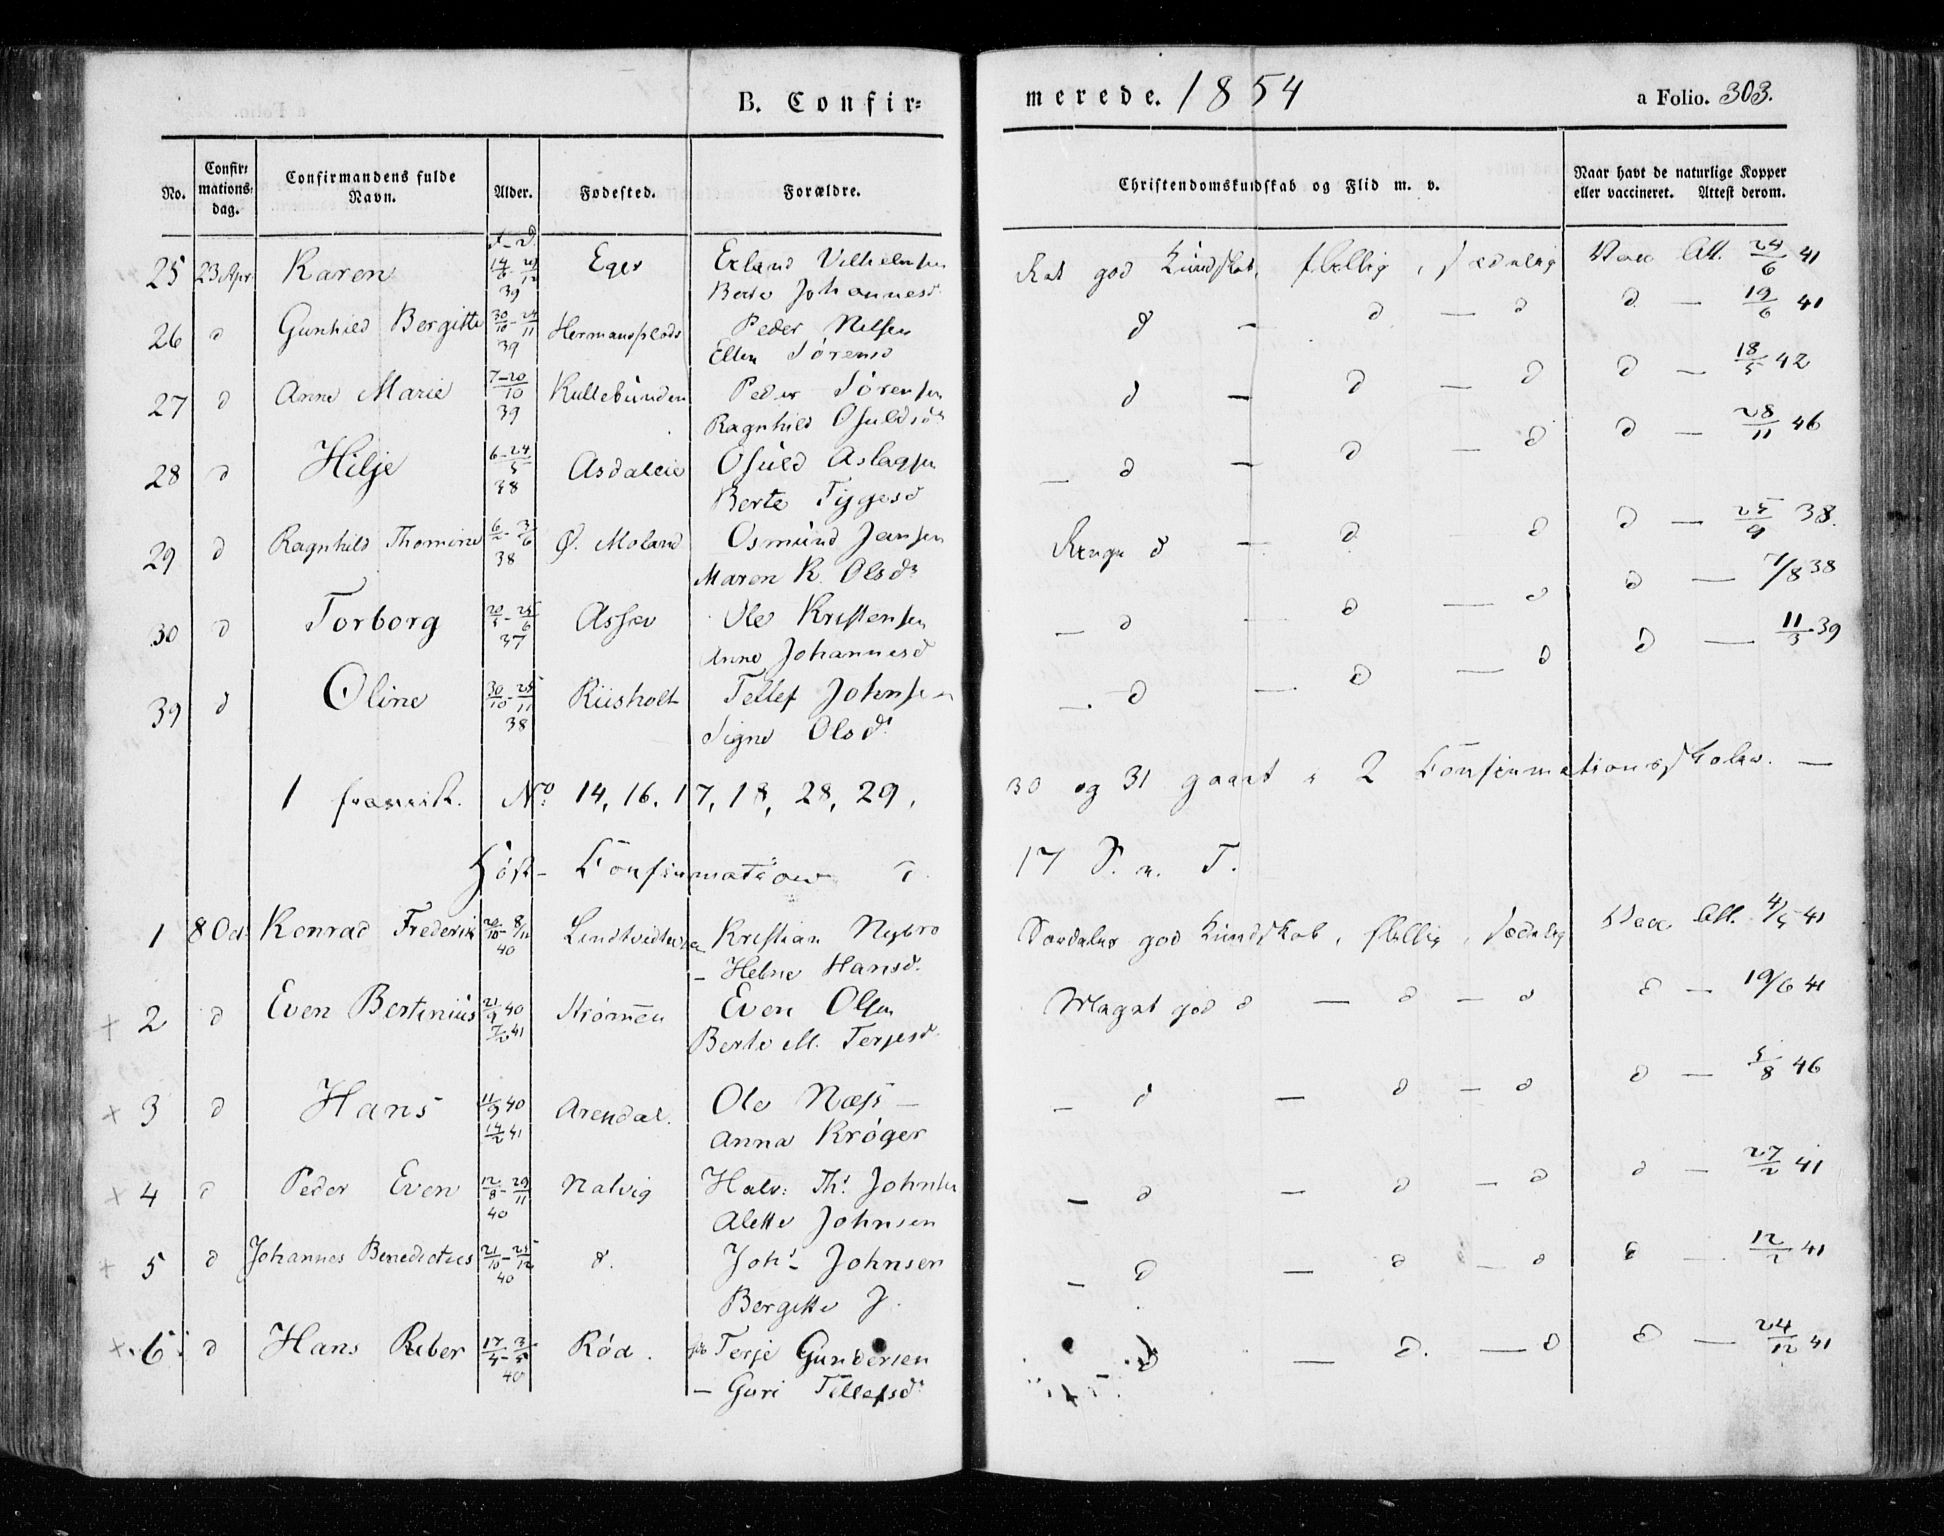 B. Confirmerede. 1854 a Folio. 303.
No. Confirmationsdag. Confirmandens fulde Navn. Alder. Fødested. Forældre. Christendomskundskab og Flid m. v. Naar havt de naturlige Kopper eller vaccineret. Attest derom.
25 23 Apr Karen 39 Eger Erland Vilhelmsen god Kundskab, flittig, sædelig Vac Att. 24/6 41
Berte Johannesd
26 d Gunhild Bergitte 30/10 - 24/11 39 Hermansplads Peder Nelsen d — d — d d — 19/6 41
Ellen Sørensd
27 d Anne Marie 7-20/10 39 Kullebunden Peder Sørensen d — d — d d — 18/5 42
Ragnhild Osuldsdr
28 d Hilje 6-24/5 38 Asdaleie Osuld Aslagsen — d — d — d d — 28/11 46
Berte Tygesd
29 d Ragnhild Thomine 6/2 - 3/6 38 Ø. Moland Osmund Jensen d — d — d d — 25/9 38.
Maren K. Olsdr
30 d Torborg 20/5 - 25/6 37 Assev Ole Kristensen — d — d — d d — 7/8 38
Anne Johannesd
39 d Oline 30/10 - 25/11 38 Riisholt Tellef Johnsen — d — d — d d — 11/3 39
Signe Olsdr
1 No 14, 16, 17, 18, 28, 29, 30 og 31 gaaet i 2 Confirmationsskoler. —
Høst- Confirmation d. 17 S. n. T.
1 8 Oct Konrad Frederik 20/10 - 8/12 40 Kristian Nybro Særdeles god Kundskab, flittig, sædelig Vac Att. 4/5 41
— Helene Hansd.
× 2 d Even Bertinius 21/9 40 7/2 41 Strømmen Even Olsen Meget god d — d — d d — 19/6 41
Berte M. Terjesd.
× 3 d Hans 11/9 40 14/2 41 Arendal. Ole Næss — — d — d — d d — 5/8 46
Anna Krøger
× 4 d Peder Even 12/8 - 29/11 40 Natvig Halv: Th: Johnsen — d — d — d d — 27/2 41
Alette Johnsen
× 5 d Johannes Benedictus 21/10 - 25/12 40 d. Joh: Johnsen — d — d — d d — 12/2 41
Bergitte J.
× 6 d Hans Reber 17/4 - 3/5 40 Rød. Terje Gundersen d — d. — d d — 24/12 41
— Guri Tellefsdr